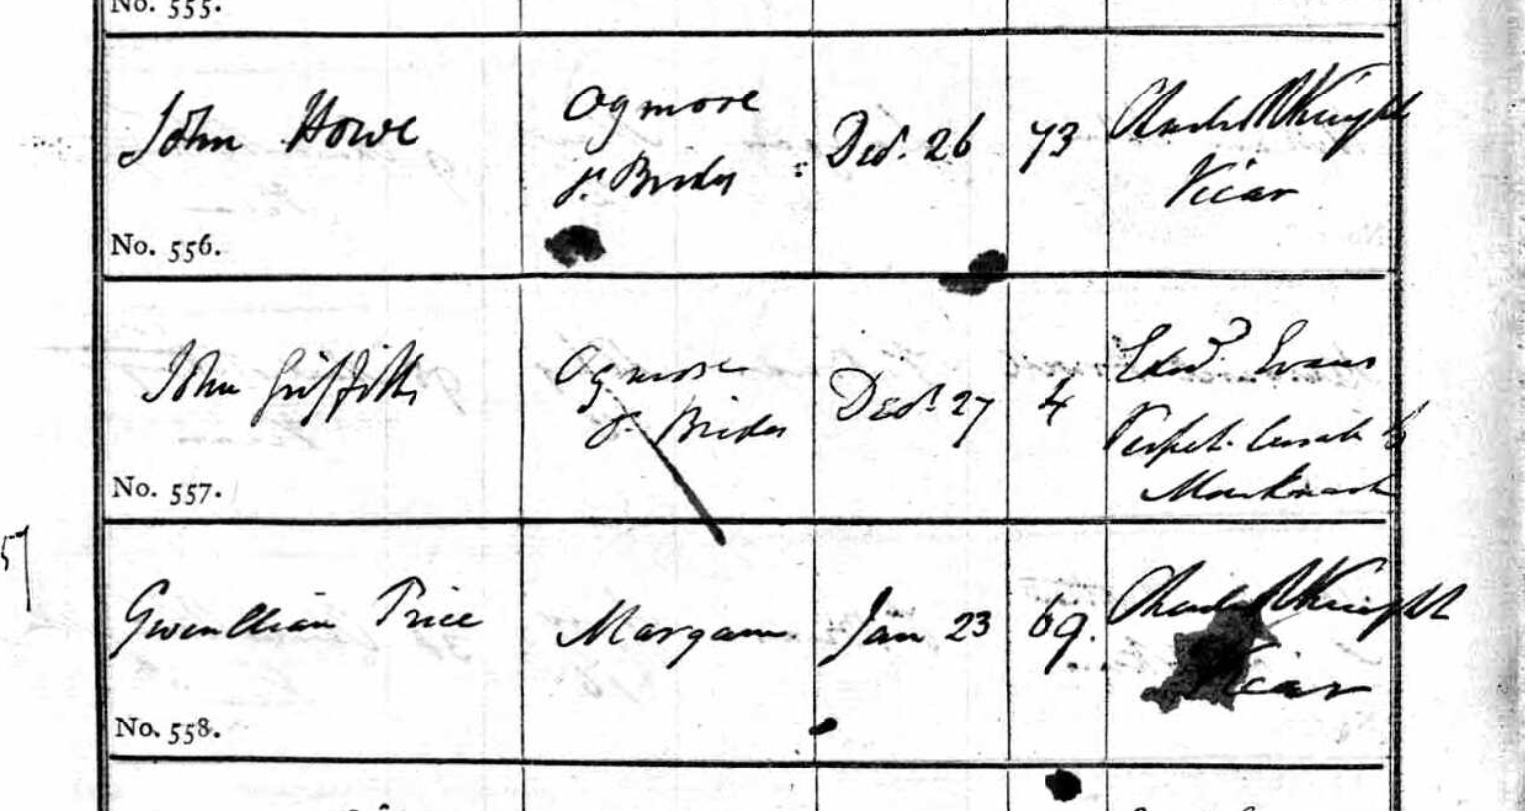 No. 555.
John Howe
Ogmore
St. Brides
Decr. 26
73
Charles R Knight
Vicar
No. 556.
John Griffiths
Ogmore
St. Brides
Decr. 27
4
Edwd. Evans
Perpet. Curate of
Monknash
No. 557.
57
Gwenllian Price
Margam
Jan 23
69.
Charles R Knight
Vicar
No. 558.